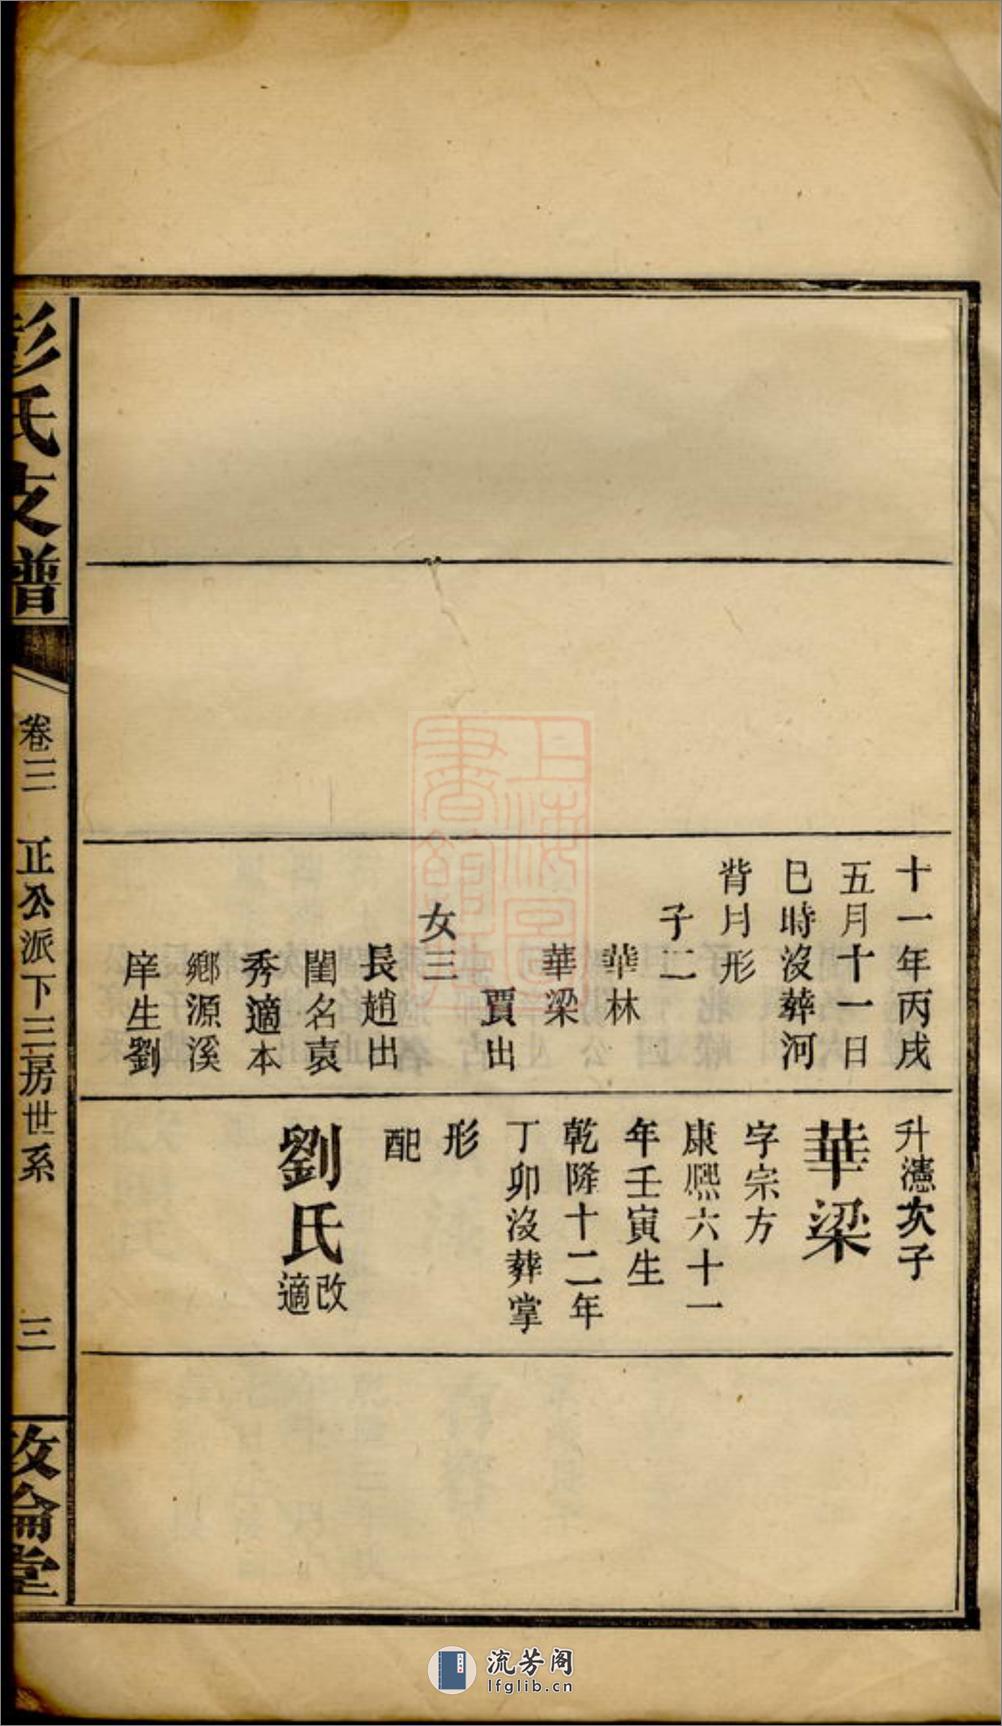 十一年丙戌
五月十一日
巳時沒葬河
背月形
子二
華林
華梁
賈出
女三
長趙出
閨名袁
秀適本
鄉源溪
庠生劉
升濾次子
華梁
字宗方
康熙六十一
年壬寅生
乾隆十二年
丁卯沒葬掌
形
配
劉氏
改
適
彭氏支譜
卷三
正公派下三房世系
三
敦倫堂
上海圖書館藏
流芳阁
lfglib.cn